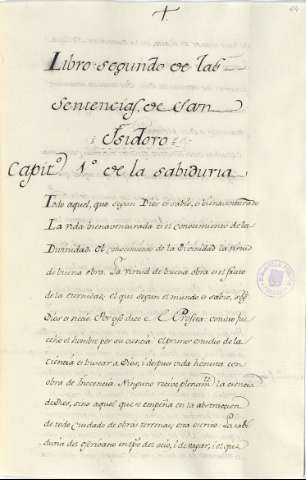 Libro segundo de las
Sentencias de San
Isidoro
Capit.º 1.º de la sabiduria
Todo aquel, que segun Dios es sabio, es bienaventurado
La vida bienaventurada es el conocimiento de la
Divinidad. El conocimiento de la Divinidad la virtud
de buena obra. La virtud de buena obra es el fruto
de la eternidad; el que segun el mundo es sabio, segun
Dios es necio. Por esso dice el Profeta: necio fue
echo el hombre por su ciencia. el primer estudio de la
ciencia es buscar a Dios, i despues vida honesta con
obra de Inocencia. Ninguno recive plenamte. la ciencia
de Dios, sino aquel que se empeña en la abstraccion
de todo cuidado de obras terrenas, esta escrito. La sabi
duria del escrivano en tpo. del ocio, i de vagar, i el que